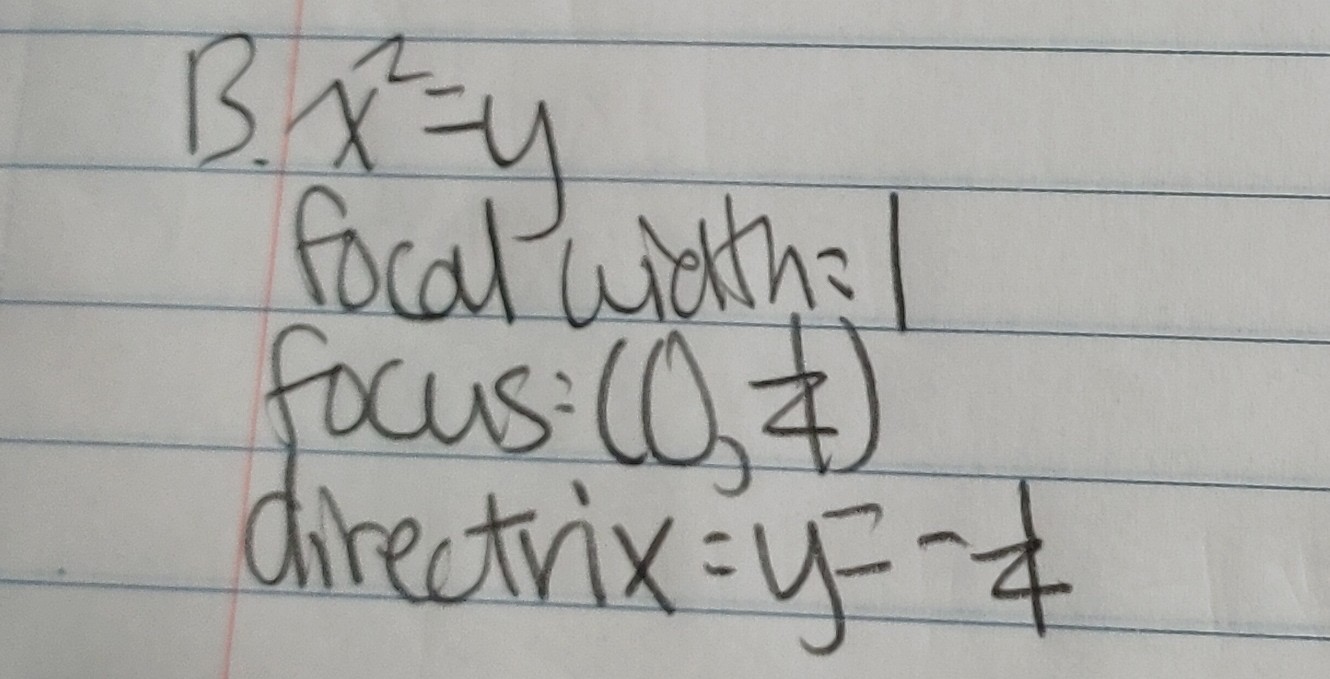 B. x²=y
focal width=1
focus:(0, 1/4)
directrix=y=-1/4